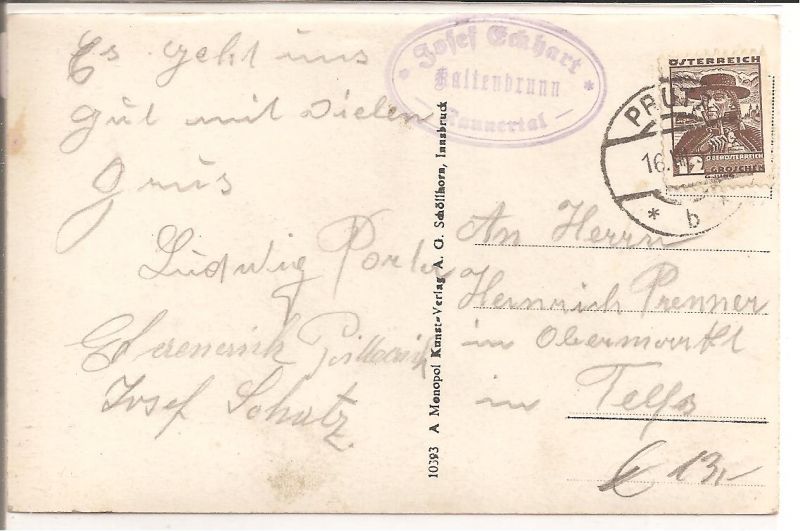 Es geht uns
gut mit vielen
grus
Ludwig
Josef Schatz
* Josef Eckhart *
Kaltenbrunn
— Kaunertal —
10393 A Monopol Kunst-Verlag A. G. Schöllhorn, Innsbruck
ÖSTERREICH
OBERÖSTERREICH
12
GROSCHEN
PRUTZ
16.
* b *
An Herrn
Heinrich Prenner
in Obermarkt
in Telfs
€ 13,-